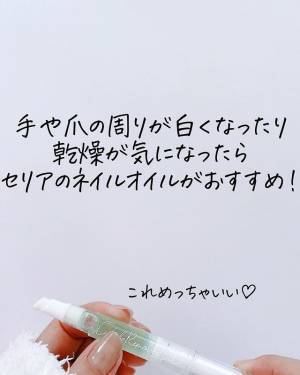 手や爪の周りが白くなったり
乾燥が気になったら
セリアのネイルオイルがおすすめ！
これめっちゃいい♡